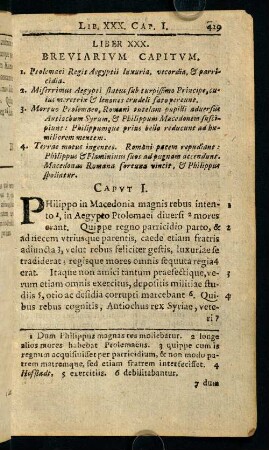 LIB. XXX. CAP. I. 419
LIBER XXX.
BREVIARIUM CAPITUM.
1. Ptolemaei Regis Aegyptii luxuria, vecordia, & parri-
cidia.
2. Miserrimus Aegypti status sub turpissimo Principe, cu-
jus meretrix & lenones crudeli fato pereunt.
3. Mortuo Ptolemaeo, Romani tutelam pupilli adversus
Antiochum Syrum, & Philippum Macedonem susci-
piunt: Philippumque prius bello reducunt ad hu-
miliorem mentem.
4. Terrae motus ingentes. Romani pacem repudiant:
Philippus & Flamininus suos ad pugnam accendunt.
Macedonas Romana fortuna vincit, & Philippus
spoliatur.
CAPUT I.
Philippo in Macedonia magnis rebus inten-
to 1, in Aegypto Ptolemaei diversi 2 mores
erant. Quippe regno parricidio parto, & 3
ad necem utriusque parentis, caede etiam fratris
adjuncta 3, velut rebus feliciter gestis, luxuriae se
tradiderat; regisque mores omnis sequuta regia 4
erat. Itaque non amici tantum praefectique, ve-
rum etiam omnis exercitus, depositis militiae stu-
diis 5, otio ac desidia corrupti marcebant 6. Qui-
bus rebus cognitis, Antiochus rex Syriae, vete-
ri 7
1 Dum Philippus magnas res moliebatur. 2 longe
alios mores habebat Ptolemaeus. 3 quippe cum is
regnum acquisivisset per patricidium, & non modo pa-
trem matremque, sed etiam fratrem interfecisset. 4
Hofstadt. 5 exercitiis. 6 debilitabantur.
7 dum